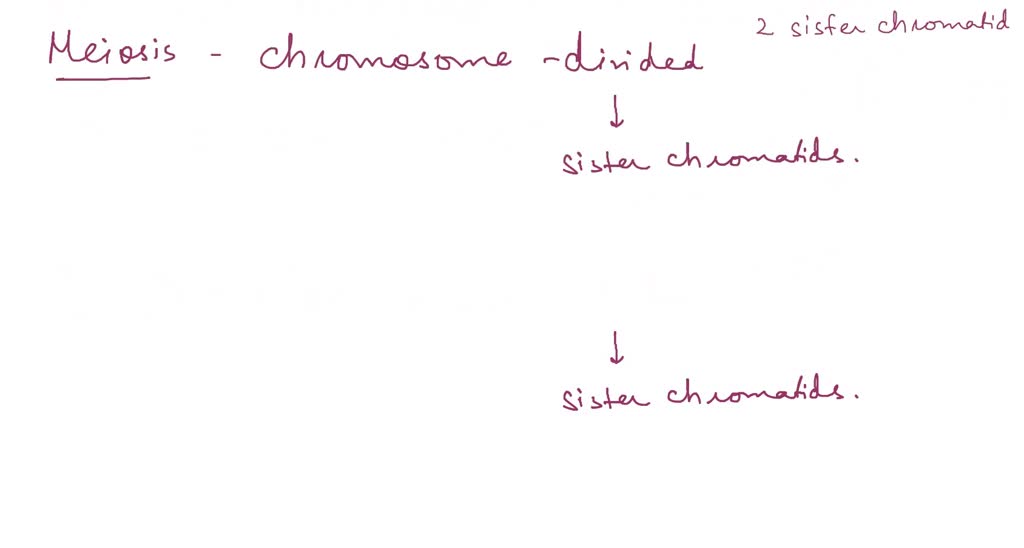 2 sister chromatid
Meiosis - chromosome - divided
↓
sister chromatids.
↓
sister chromatids.